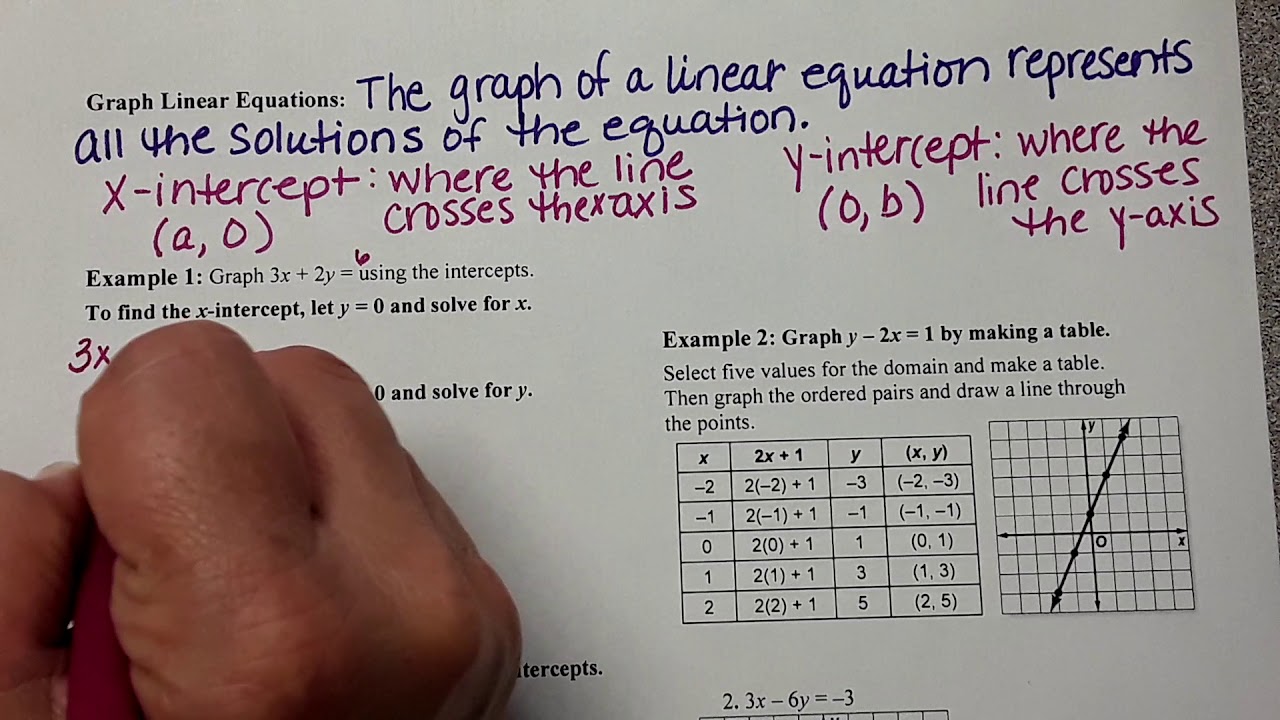 Graph Linear Equations: The graph of a linear equation represents
all the solutions of the equation.
x-intercept: where the line
crosses the x axis
(a, 0)
y-intercept: where the
line crosses
the y-axis
(0, b)
Example 1: Graph 3x + 2y = 6 using the intercepts.
To find the x-intercept, let y = 0 and solve for x.
3x
0 and solve for y.
Example 2: Graph y – 2x = 1 by making a table.
Select five values for the domain and make a table.
Then graph the ordered pairs and draw a line through
the points.
x 2x + 1 y (x, y)
–2 2(–2) + 1 –3 (–2, –3)
–1 2(–1) + 1 –1 (–1, –1)
0 2(0) + 1 1 (0, 1)
1 2(1) + 1 3 (1, 3)
2 2(2) + 1 5 (2, 5)
y
O
x
tercepts.
2. 3x – 6y = –3